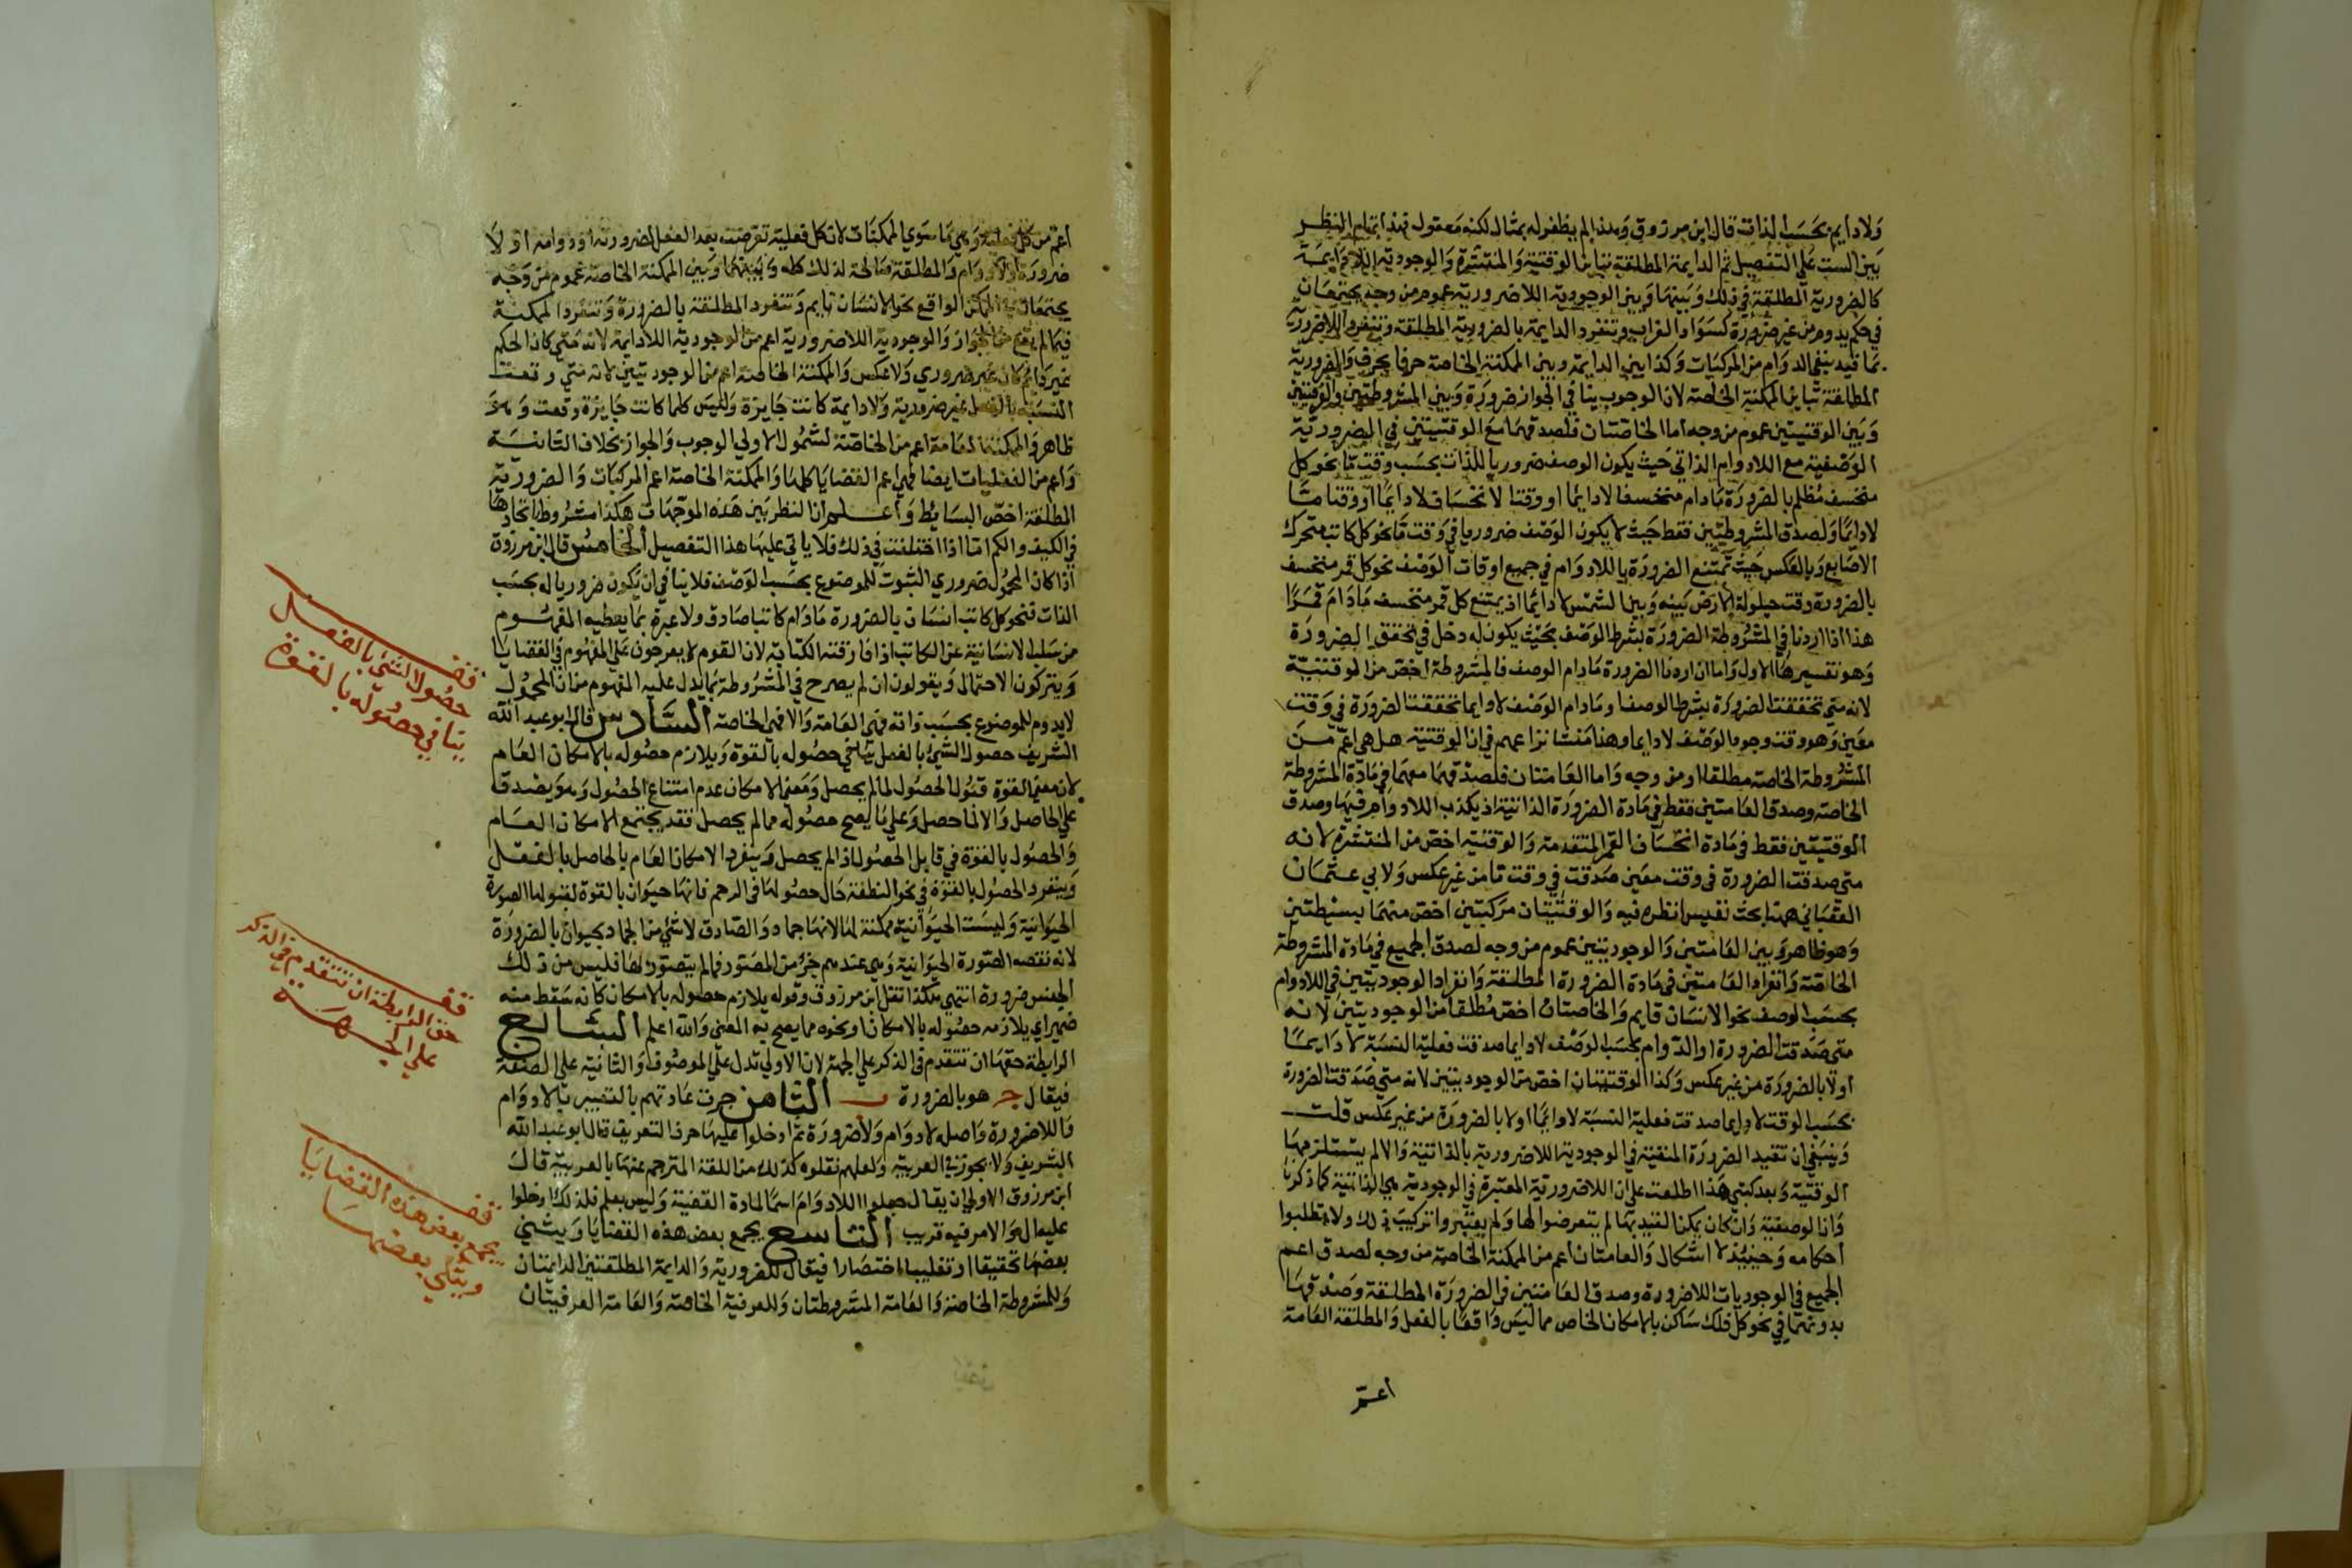 ولا دايم بحسب الذات قال ابن مرزوق وهذا لم يظفر له بمثال لكنه معقول فهذا تمام النظر
بين الست على التفصيل ثم الدايمة المطلقة تباين الوقتية والمنتشرة والوجودية اللادايمة
كالضرورية المطلقة في ذلك وبينها وبين الوجودية اللاضرورية عموم من وجه يجتمعان
في حكم يدوم من غير ضرورة كسواد الغراب وتنفرد الدايمة بالضرورية المطلقة وتنفرد اللاضرورية
بما قيد بنفي الدوام من المركبات وكذا بين الدايمة وبين الممكنة الخاصة حرفا بحرف والضرورية
المطلقة تباين الممكنة الخاصة لان الوجوب ينافي الجواز ضرورة وبين المشروطتين والوقتيتين
وبين الوقتيتين عموم من وجه اما الخاصتان فلصدقهما مع الوقتيتين في الضرورية
الوصفية مع اللادوام الذاتي حيث يكون الوصف ضروريا للذات بحسب وقت ما نحو كل
منخسف مظلم بالضرورة مادام منخسفا لا دايما او وقتا لانخساف لا دايما او وقتا ما
لا دايما ولصدق المشروطتين فقط حيث لا يكون الوصف ضروريا في وقت ما نحو كل كاتب متحرك
الاصابع وبالعكس حيث تمتنع الضرورة باللادوام في جميع اوقات الوصف نحو كل قمر منخسف
بالضرورة وقت حيلولة الارض بينه وبين الشمس لا دايما اذ يمتنع كل قمر منخسف مادام قمرا
هذا اذا اردنا في المشروطة الضرورة بشرط الوصف بحيث يكون له دخل في تحقق الضرورة
وهو تفسيرها الاول واما ان اردنا الضرورة مادام الوصف فالمشروطة اخص من الوقتية
لانه متى تحققت الضرورة بشرط الوصف او مادام الوصف لا دايما تحققت الضرورة في وقت
معين وهو وقت وجود الوصف لا دايما وهنا منشا نزاعهم في ان الوقتية هل هي اعم من
المشروطة الخاصة مطلقا او من وجه واما العامتان فلصدقهما معهما في مادة المشروطة
الخاصة وصدق العامتين فقط في مادة الضرورة الذاتية اذ يكذب اللادوام فيها وصدق
الوقتيتين فقط في مادة انخساف القمر المتقدمة والوقتية اخص من المنتشرة لانه
متى صدقت الضرورة في وقت معين صدقت في وقت ما من غير عكس ولابي عثمان
العقباني هنا بحث نفيس انظره فيه والوقتيتان مركبتين اخص منهما بسيطتين
وهو ظاهر وبين العامتين والوجوديتين عموم من وجه لصدق الجميع في مادة المشروطة
الخاصة وانفراد العامتين في مادة الضرورة المطلقة وانفراد الوجوديتين في اللادوام
بحسب الوصف نحو الانسان قايم والخاصتان اخص مطلقا من الوجوديتين لانه
متى صدقت الضرورة او الدوام بحسب الوصف لا دايما صدقت فعلية النسبة لا دايما
او لا بالضرورة من غير عكس وكذا الوقتيتان اخص من الوجوديتين لانه متى صدقت الضرورة
بحسب الوقت لا دايما صدقت فعلية النسبة لا دايما او لا بالضرورة من غير عكس قلت
وينبغي ان تقيد الضرورة المنفية في الوجودية اللاضرورية بالذاتية والا لم يستلزمها
الوقتية وبعد كتبي هذا اطلعت على ان اللاضرورية المعتبرة في الوجودية هي الذاتية كما ذكرنا
وان الوصفية وان كان يمكن التقييد بها لم يتعرضوا لها ولم يعتبروا تركيب ذلك ولا تطلبوا
احكامه وحينئذ لا اشكال والعامتان اعم من الممكنة الخاصة من وجه لصدق اعم
الجميع في الوجوديات اللاضرورة وصدق العامتين في الضرورة المطلقة وصدقها
بدونهما في نحو كل فلك ساكن بالامكان الخاص مما ليس واقعا بالفعل والمطلقة العامة
اعم
اعم من كل فعلية وهي ما سوي الممكنات لان كل فعلية تعرضت بعد الفعل لضرورته او دوامه او لا
ضرورة او لا دوام والمطلقة صالحة لذلك كله وبينها وبين الممكنة الخاصة عموم من وجه
يجتمعان في الممكن الواقع نحو الانسان نايم وتنفرد المطلقة بالضرورة وتنفرد الممكنة
فيما لم يقع من الجواز والوجودية اللاضرورية اعم من الوجودية اللادايمة لانه متى كان الحكم
غير دايم كان غير ضروري ولا عكس والممكنة الخاصة اعم من الوجوديتين لانه متي وقعت
النسبة بالفعل غير ضرورية ولا دايمة كانت جايزة وليس كلما كانت جايزة وقعت وهو
ظاهر والممكنة العامة اعم من الخاصة لشمول الاولي الوجوب والجواز بخلاف الثانية
واعم من الفعليات ايضا فهي اعم القضايا كلها والممكنة الخاصة اعم المركبات والضرورية
المطلقة اخص البسايط واعلم ان النظر بين هذه الموجهات هكذا مشروط باتحادها
في الكيف والكم اما اذا اختلفت في ذلك فلا ياتي عليها هذا التفصيل الخامس قال ابن مرزوق
اذا كان المحمول ضروري الثبوت للموضوع بحسب الوصف فلا ينافي ان يكون ضروريا له بحسب
الذات فنحو كل كاتب انسان بالضرورة مادام كاتبا صادق ولا عبرة بما يعطيه المفهوم
من سلب الانسانية عن الكاتب اذا فارقته الكتابة لان القوم لا يعرجون على المفهوم في القضايا
ويتركون الاحتمال ويقولون ان لم يصرح في المشروطة بما يدل عليه المفهوم من ان المحمول
لا يدوم للموضوع بحسب ذاته فهي العامة والا فهي الخاصة السادس قال ابو عبد الله
الشريف حصول الشيء بالفعل ينافي حصوله بالقوة ويلازم حصوله بالامكان العام
لان معنى القوة قبول الحصول لما لم يحصل ومعنى الامكان عدم امتناع الحصول وهو يصدق
على الحاصل والا لما حصل وعلي ما يصح حصوله مما لم يحصل فقد يجتمع الامكان العام
والحصول بالقوة في قابل الحصول اذا لم يحصل وينفرد الامكان العام بالحاصل بالفعل
وينفرد الحصول بالقوة في نحو النطفة حال حصولها في الرحم فانها حيوان بالقوة لقبولها الصورة
الحيوانية وليست الحيوانية ممكنة لها لانها جماد والصادق لا شيء من الجماد بحيوان بالضرورة
لانه نقصه الصورة الحيوانية وهي عندهم جزء من المصور فما لم يتصور بها فليس من ذلك
الجنس ضرورة انتهى هكذا نقل ابن مرزوق وقوله يلازم حصوله بالامكان كانه سقط منه
ضمير اي يلازمه حصوله بالامكان او نحوه مما يصح به المعنى والله اعلم السابع
الرابطة حقها ان تتقدم في الذكر علي الجهة لان الاولي تدل علي الموصوف والثانية على الصفة
فيقال ج هو بالضرورة ب الثامن جرت عادتهم بالتعبير باللادوام
واللاضرورة واصله لا دوام ولا ضرورة ثم ادخلوا عليها حرف التعريف قال ابو عبد الله
الشريف ولا يجوز في العربية ولعلهم نقلوه كذلك من اللغة المترجم عنها بالعربية قال
ابن مرزوق الاولى ان يقال جعلوا اللادوام اسما لمادة القضية وليس بعلم فلذلك ادخلوا
عليه ال والامر فيه قريب التاسع يجمع بعض هذه القضايا ويثني
بعضها تحقيقا او تغليبا اختصارا فيقال للضرورية والدايمة المطلقتين الدايمتان
وللمشروطة الخاصة والعامة المشروطتان وللعرفية الخاصة والعامة العرفيتان
قف
حصول الشيء بالفعل
ينافي حصوله بالقوة
قف
حق الرابطة ان تتقدم في الذكر
علي الجهة
قف
يجمع بعض هذه القضايا
ويثني بعضها